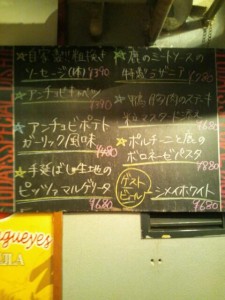 ★自家製!!粗挽き
ソーセージ(1本)¥390
★アンチョビキャベツ
¥390
★アンチョビポテト
ガーリック風味
¥480
★手延ばし生地の
ピッツァマルゲリータ
¥680
★鹿のミートソースの
特製ラザニア
¥780
のステーキ
¥680
★ポルチーニと鹿の
ボロネーゼパスタ
¥880
ゲスト
ビール
ヒメホワイト
¥680
TODAY'S SPECIAL
gueyes